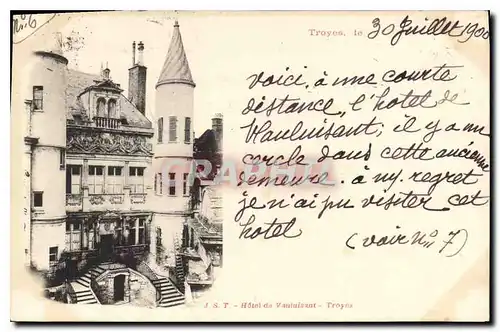 No 6
Troyes, le 30 Juillet 1900
voici, à une courte
distance, l'hotel de
Vauluisant, il y a un
cercle dans cette ancienne
demeure. à my regret
je n'ai pu visiter cet
hotel.
(voir No 7)
J. S. T - Hôtel de Vauluisant - Troyes
CPARAMA.COM